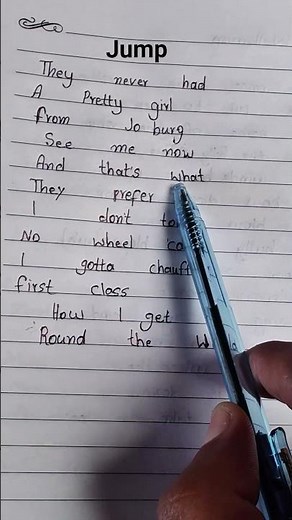 Jump
They never had
A Pretty girl
from Jo burg
See me now
And that's what
They prefer
I don't
No wheel
I gotta
first class
How I get
Round the